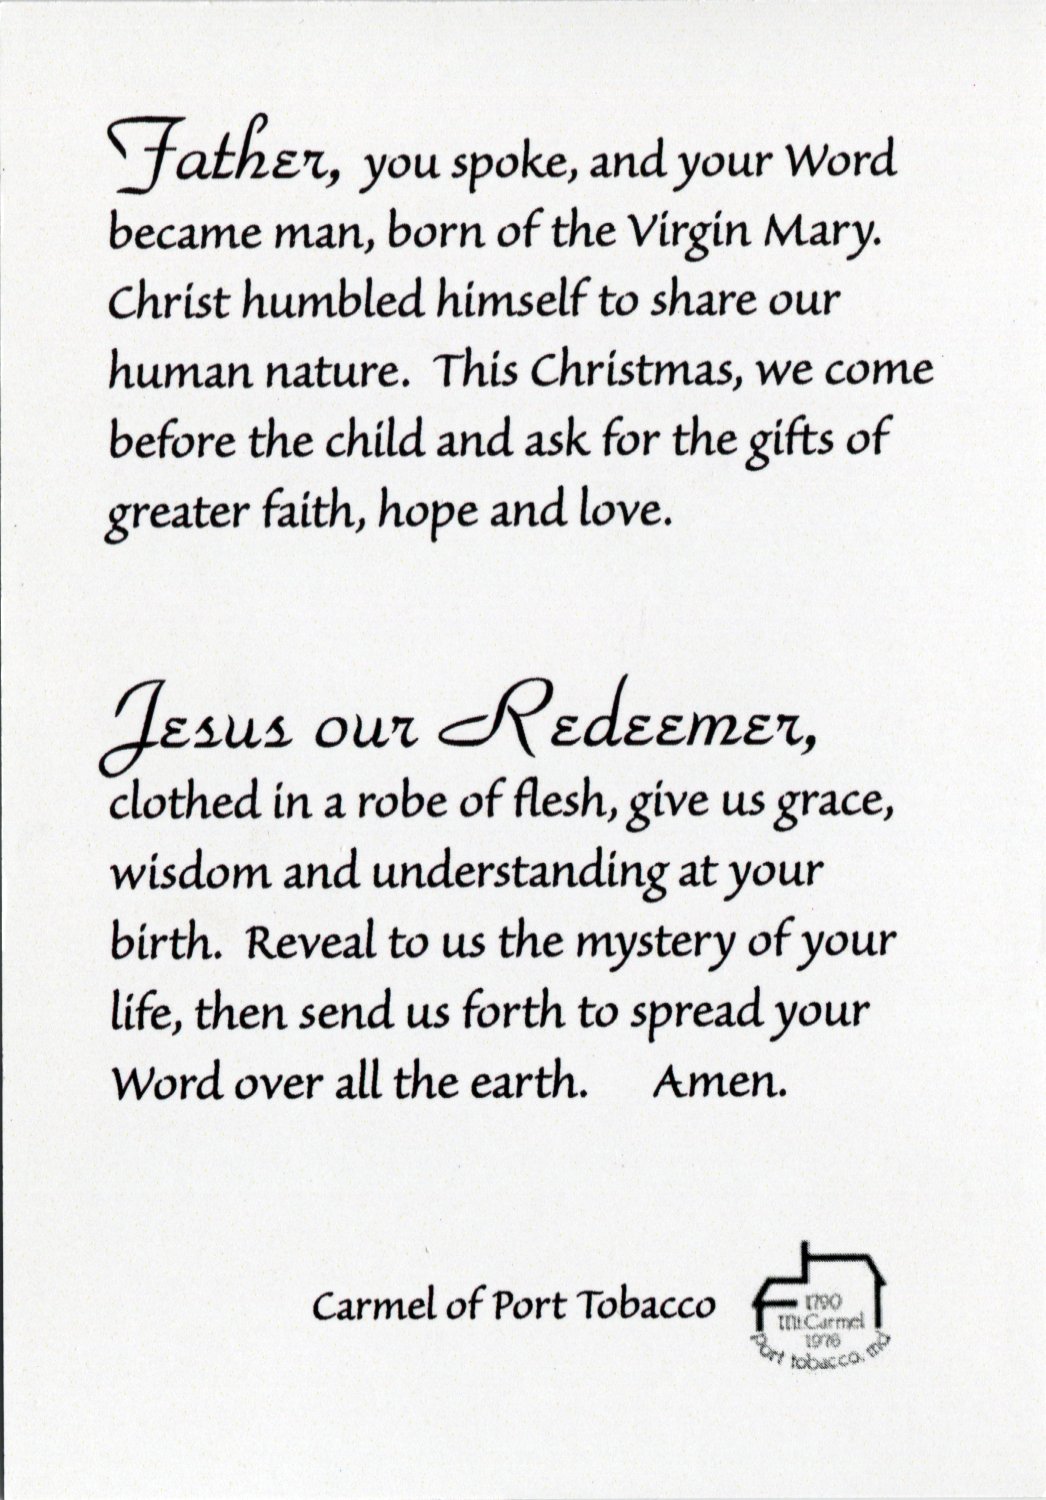 Father, you spoke, and your Word
became man, born of the Virgin Mary.
Christ humbled himself to share our
human nature. This Christmas, we come
before the child and ask for the gifts of
greater faith, hope and love.
Jesus our Redeemer,
clothed in a robe of flesh, give us grace,
wisdom and understanding at your
birth. Reveal to us the mystery of your
life, then send us forth to spread your
Word over all the earth. Amen.
Carmel of Port Tobacco
1790
Mt. Carmel
1976
port tobacco, md